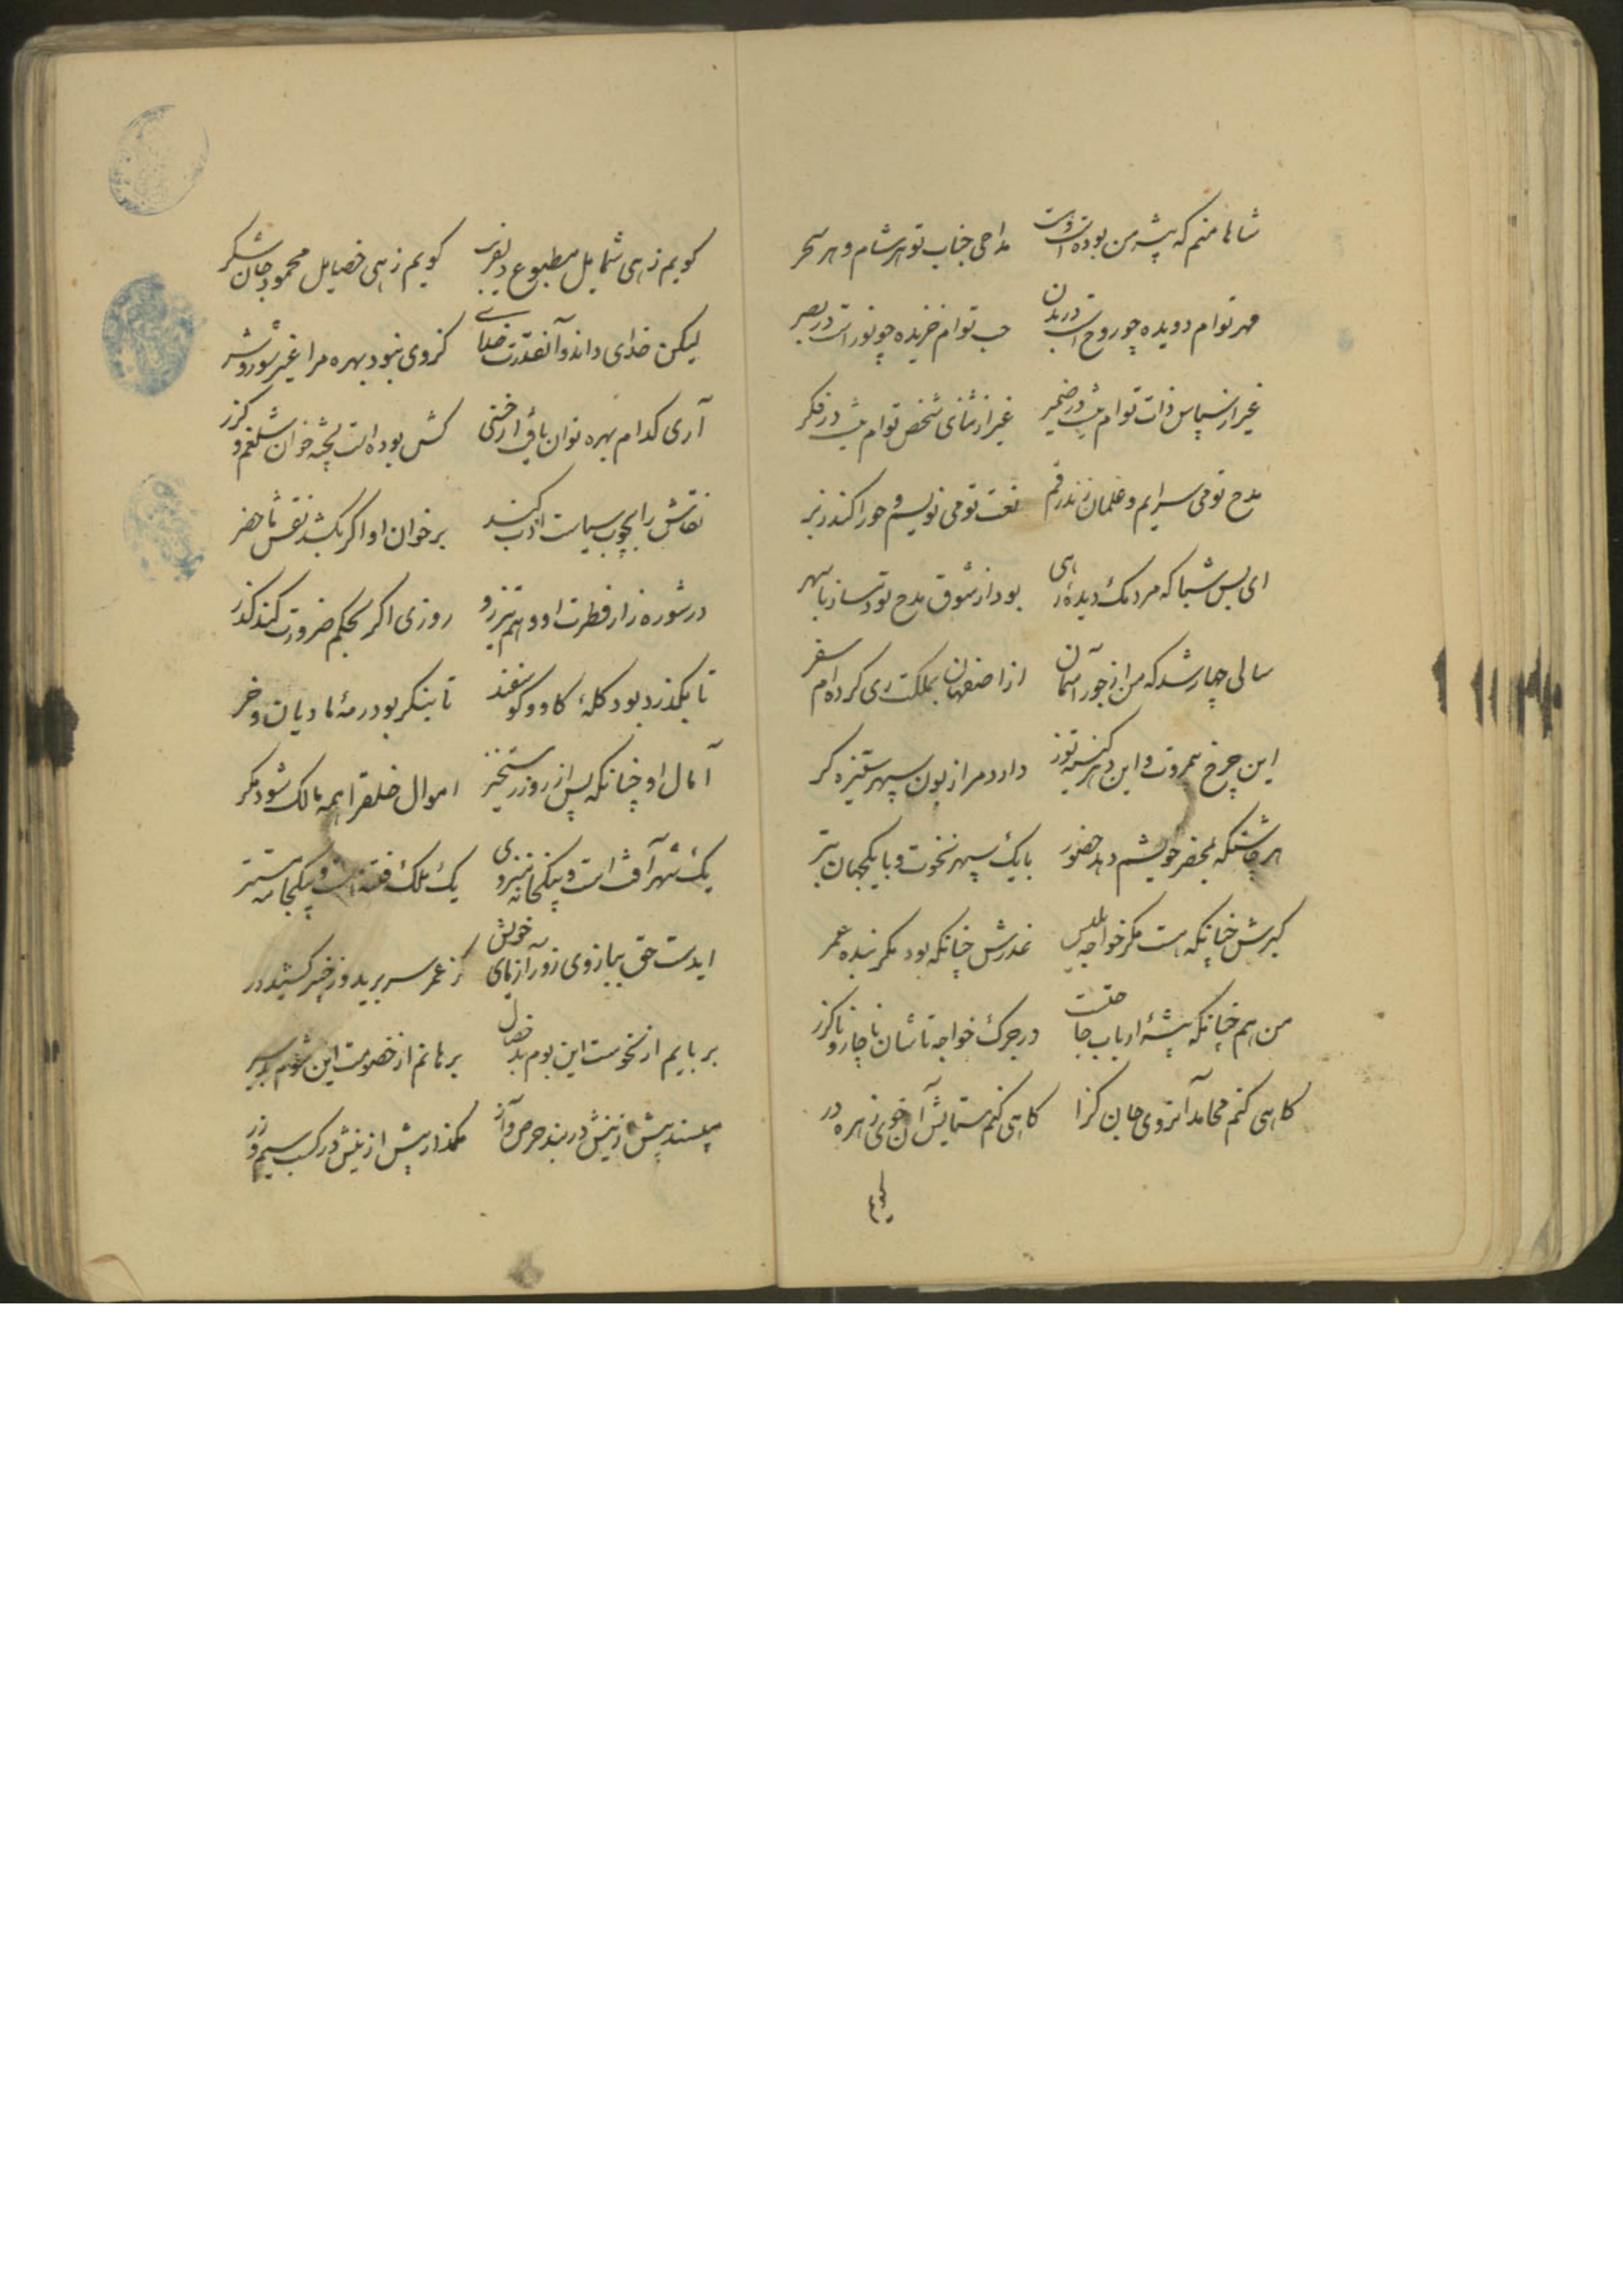 شاها منم که پیشه من بوده است و هست مداحی جناب تو هر شام و هر سحر
مهر توام دویده چو روح است در بدن حب توام خزیده چو نور است در بصر
غیر از سپاس ذات توام نیست در ضمیر غیر از ثنای شخص توام نیست در فکر
مدح تو می سرایم و غلمان زند رقم نعت تو می نویسم و حورا کند زبر
ای بس شبا که مردمک دیده رهی بود از شوق مدح تو دمساز با سهر
سالی چهار شد که من از جور آسمان از اصفهان بمملکت ری کرده ام سفر
این چرخ بیمروت و این دهر کینه توز دارد مرا زبون سپهر ستیزه گر
هر چاشتگه بمحضر خویشم دهد حضور با یک سپهر نخوت و با یکجهان
کبرش چنانکه هست مگر خواجه بلیس غدرش چنانکه بود مگر بنده عمر
من هم چنانکه پیشه ارباب حاجتست در جرک خواجه تاشان ناچار و ناگزر
گاهی کنم محامد آنروی جان گزا گاهی کنم ستایش آن خوی زهره در
گویم
گویم زهی شمایل مطبوع دلفریب گویم زهی خصایل محمود جان شکر
لیکن خدای داند و آنقدرت خدای کزوی نبود بهره مرا غیر شور و شر
آری کدام بهره توان یافت از خسی کش بوده است پخته خوان شلغم و گزر
نقاش را بچوب سیاست ادب کنند بر خوان او اگر بکشد نقش ماحضر
در شوره زار فطرت او وهم تیزرو روزی اگر بحکم ضرورت کند گذر
تا بگذرد بود گله گاو و گوسفند تا بنگرد بود رمه مادیان و خر
آمال او چنانکه پس از روز رستخیز اموال خلق را همه مالک شود مگر
یک شهر آفت است و بیکخانه منزوی یک ملک فتنه است و بیکجامه مستتر
ایدست حق ببازوی زور آزمای خویش کز عمر سر برید و ز خیبر کشید در
بربایم از نحوست این بوم بد خصال برهانم از خصومت این شوم بد سیر
مپسند بیش ازینش در بند حرص و آز مگذار بیش ازینش در کسب سیم و زر